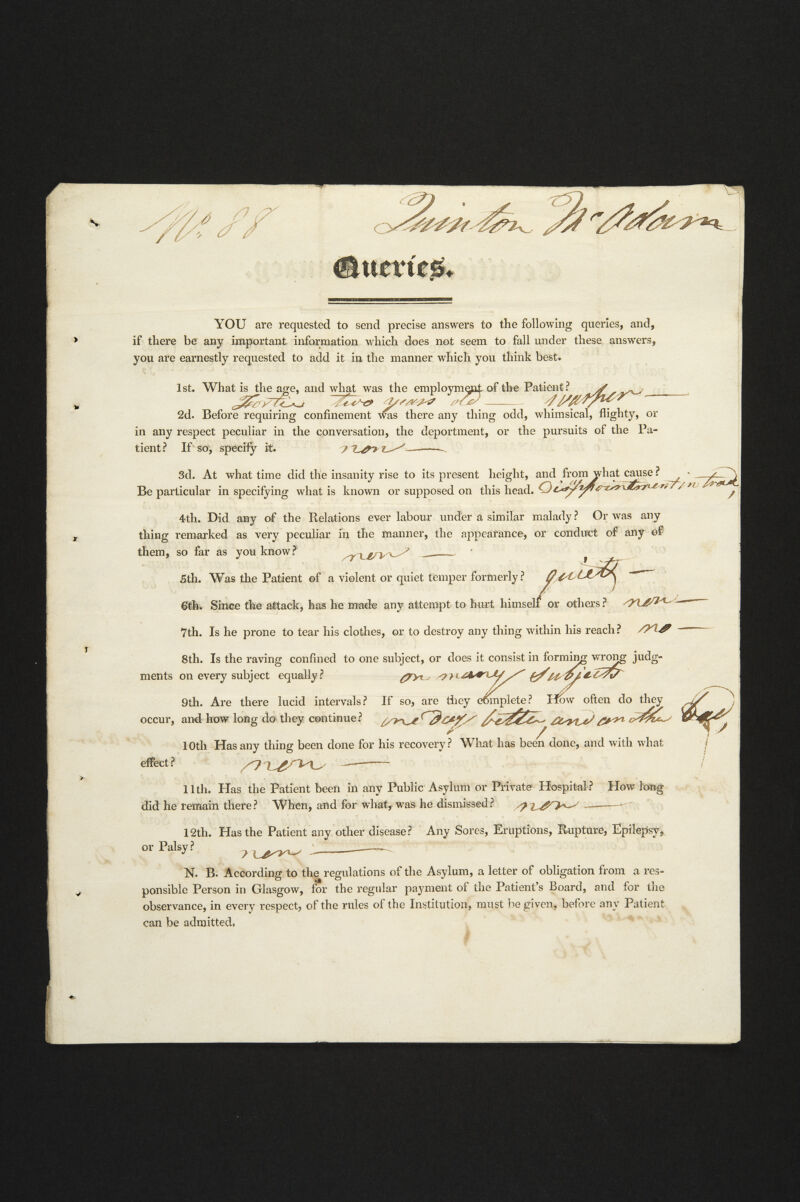 No. 88
Quinton McAdam
Queries.
YOU are requested to send precise answers to the following queries, and,
if there be any important information which does not seem to fall under these answers,
you are earnestly requested to add it in the manner which you think best.
1st. What is the age, and what was the employment of the Patient?
Fortie two years old — Warper —
2d. Before requiring confinement was there any thing odd, whimsical, flighty, or
in any respect peculiar in the conversation, the deportment, or the pursuits of the Pa-
tient? If so, specify it. non —
3d. At what time did the insanity rise to its present height, and from what cause?
Be particular in specifying what is known or supposed on this head. Disappointment in trad
4th. Did any of the Relations ever labour under a similar malady? Or was any
thing remarked as very peculiar in the manner, the appearance, or conduct of any of
them, so far as you know? non —
5th. Was the Patient of a violent or quiet temper formerly? quiett —
6th. Since the attack, has he made any attempt to hurt himself or others? non —
7th. Is he prone to tear his clothes, or to destroy any thing within his reach? no —
8th. Is the raving confined to one subject, or does it consist in forming wrong judg-
ments on every subject equally? on many Subjects
9th. Are there lucid intervals? If so, are they complete? How often do they
occur, and how long do they continue? one Day better and on othe Bad,
10th Has any thing been done for his recovery? What has been done, and with what
effect? non —
11th. Has the Patient been in any Public Asylum or Private Hospital? How long
did he remain there? When, and for what, was he dismissed? non —
12th. Has the Patient any other disease? Any Sores, Eruptions, Rupture, Epilepsy,
or Palsy? non —
N. B. According to the regulations of the Asylum, a letter of obligation from a res-
ponsible Person in Glasgow, for the regular payment of the Patient's Board, and for the
observance, in every respect, of the rules of the Institution, must be given, before any Patient
can be admitted.